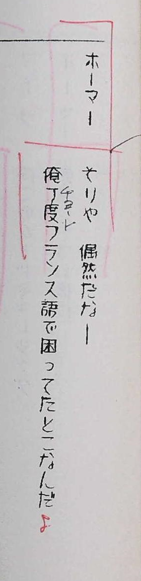 ホーマー　そりゃ　偶然だなー
俺丁度フランス語で困ってたとこなんだよ
チョード